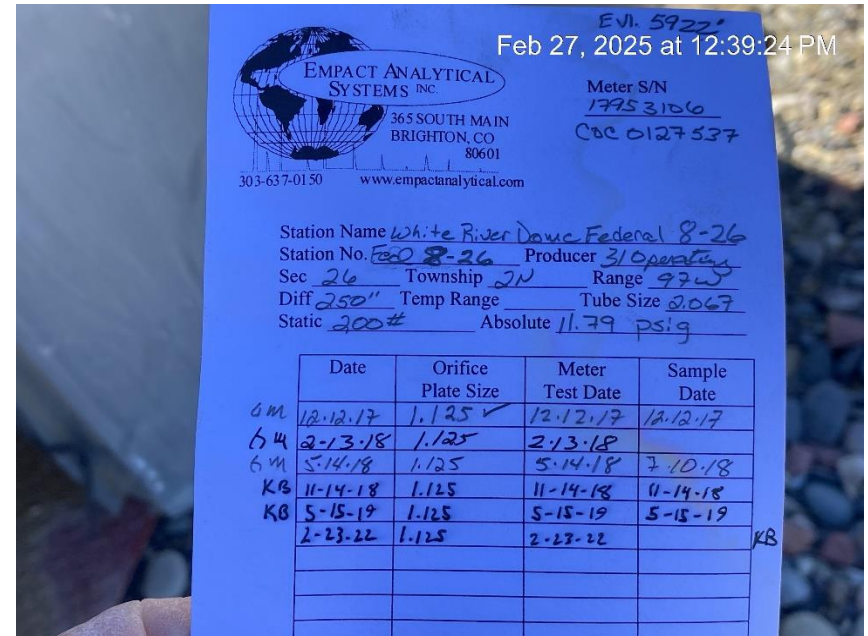 EVl. 5922'
Feb 27, 2025 at 12:39:24 PM
EMPACT ANALYTICAL
SYSTEMS INC.
365 SOUTH MAIN
BRIGHTON, CO
80601
303-637-0150 www.empactanalytical.com
Meter S/N
17953106
CDC 0127537
Station Name White River Dome Federal 8-26
Station No. Fed 8-26 Producer 31 Operating
Sec 26 Township 2N Range 97W
Diff 250" Temp Range Tube Size 2.067
Static 200# Absolute 11.79 psig
Date Orifice Plate Size Meter Test Date Sample Date
12.12.17 1.125 ✓ 12.12.17 12.12.17
2-13-18 1.125 2.13.18
5.14.18 1.125 5.14.18 7.10.18
KB 11-14-18 1.125 11-14-18 11-14-18
KB 5-15-19 1.125 5-15-19 5-15-19
2-23-22 1.125 2-23-22 KB